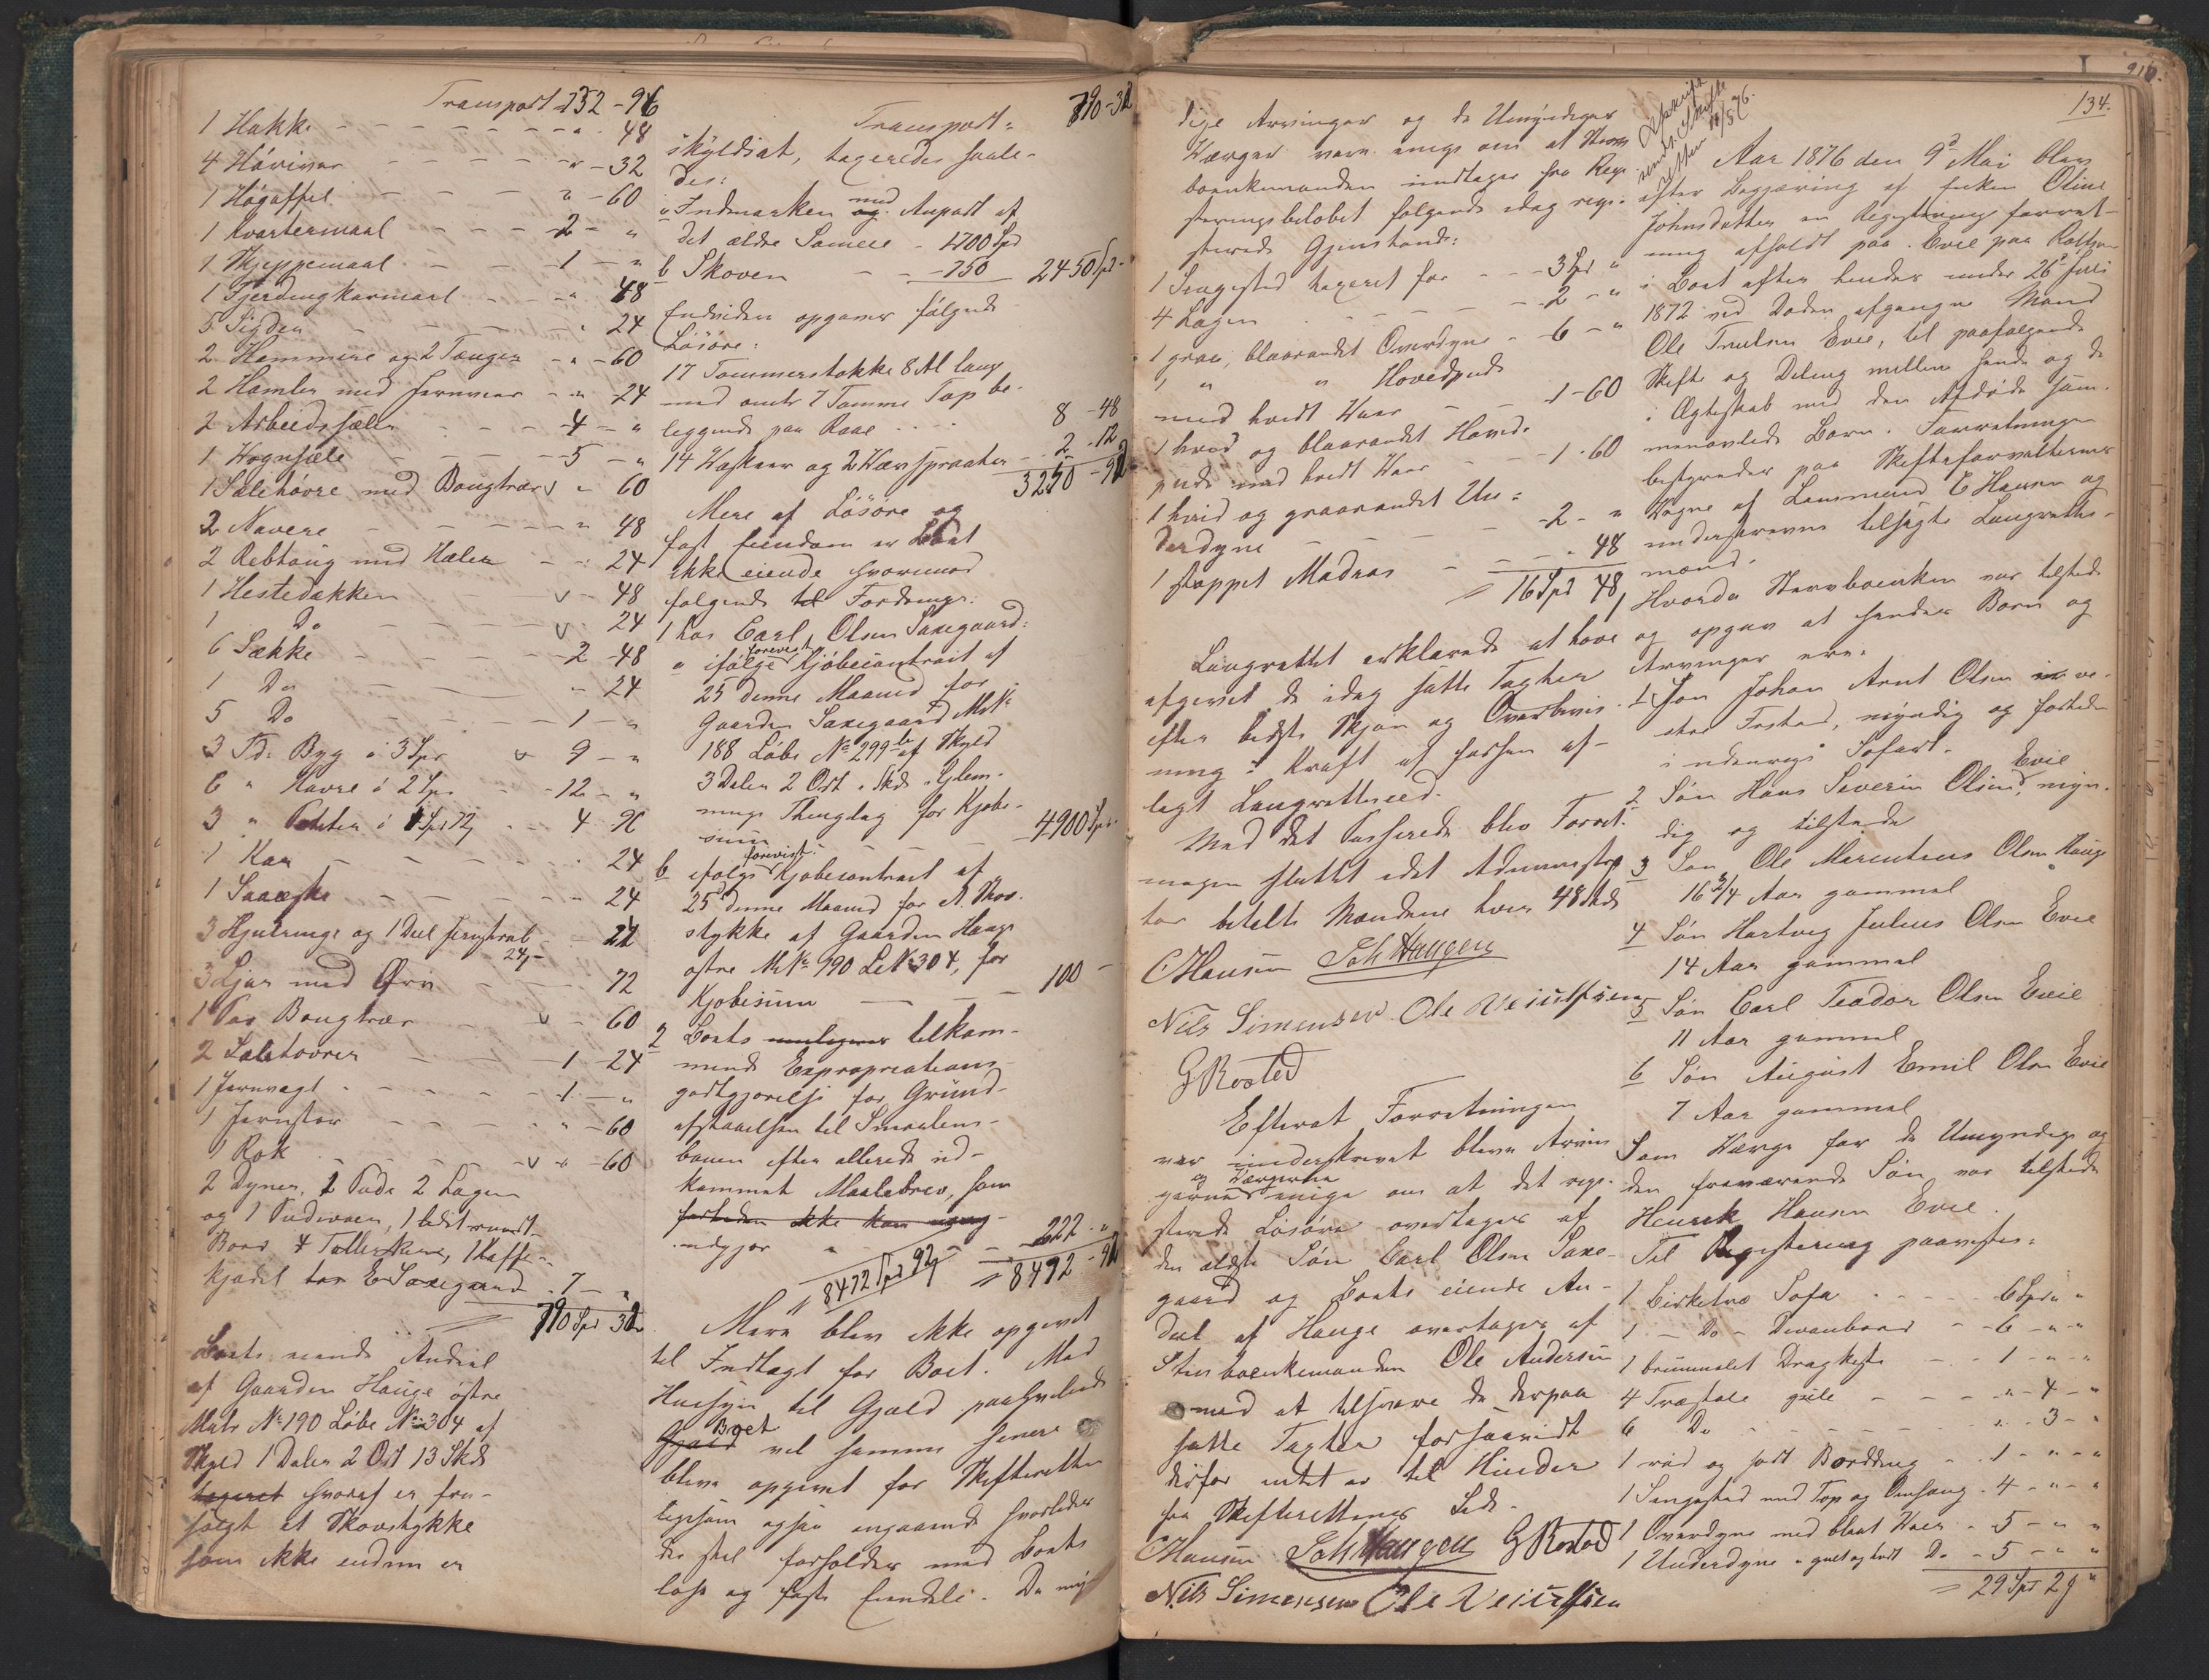 Transport 752 - 96
1 Hakke - - - " - 48
4 Hörivar - - - " - 32
1 Högaffel - - - " - 60
1 Kvartermaal - - - 2 - "
1 Skjeppemaal - - - 1 - "
1 Fjerdingkarmaal - - " 48
5 Sigder - - - " 24
2 Hammere og 2 Tænger - " - 60
2 Hamler med Jernvær - " 24
2 Arbeidssæler - - - 4 - "
1 Vognsæle - - - 5 - "
1 Sælehövre med Bougtræer v " 60
2 Navere - - - " 48
2 Rebtoug med Hæler - " 24
1 Hestedækken v - 48
1 Do v 24
6 Sække - - - 2 - 48
1 Do - - - " 24
5 Do - - - 1 - "
3 Td. Byg á 3 Spd v 9 - "
6 " Havre á 2 Sp. - 12 - "
3 " Poteter á 1 Spd 72 - 4 96
1 Kar - - - 24
1 Saaæske - - - 24
3 Hjulringe og 1 Deel Jernskrab - 24
3 Ljaa med Orv - - 72
1 Par Bougtræer v - 60
2 Sælehövrer - 1 - 24
1 Jernvægt - - - 1 - "
1 Jernstör - - - " - 60
1 Rok - v " - 60
2 Dyner, 1 Pude 2 Lagen
og 1 Pudevaer, 1 lidet rundt
Bord 4 Tallerkene, 1 Kaffe-
kjedel hos E Saxegaard 7 - "
790 Spd 32
Boets eiende Andeel
af Gaarden Hauge östre
Matr No 190 Löbe No 304 af
Skyld 1 Daler 2 Ort 13 Skill
taxeret hvoraf er fra-
solgt et Skovstykke
som ikke endnu er
Transport = 790 - 32
skyldsat, taxeredes saale-
des:
a Indmarken med Anpart af
det ældre Sameie - 1700 Spd
b Skoven - - 750 2450 Spd -
Endvidere opgaves fölgende
Lösöre:
17 Tommerstokke 8 Al lang
med omtr 7 Tomme Top be-
liggende paa Raae - - 8 - 48
14 Vaskeer og 2 - 2 - 12
3250 - 92
Mere af Lösöre og
fast Eiendom er Boet
ikke eiende hvorimod
fölgende til Fordringer:
1 hos Carl Olsen Saxegaard:
a ifölge forevist Kjöbecontract af
25 denne Maaned for
Gaarden Saxegaard MNo
188 Löbe No 299 b af Skyld
3 Daler 2 Ort . Skill. Glem-
minge Thinglag for Kjöbe-
sum - 4900 Spd -
b ifölge forevist Kjöbecontract af
25 denne Maaned for et Skov-
stykke af Gaarden Hauge
östre MNo 190 LNo 304, for
Kjöbesum - - - 100 -
2 Boets tilkom-
mende Expropriations-
godtgjörelse for Grund-
afstaaelsen til Smaalens-
banen efter allerede ud-
kommet Maalebrev, som
udgjör - - - 222 - "
8472 Spd 92 = 8472 - 92
Mere blev ikke opgivet
til Indtægt for Boet. Med
Hensyn til Gjæld paahvilende
Boet vil samme senere
blive opgivet for Skifteretten
ligesom ogsaa angaaende hvorledes
der skal forholdes med Boets
löse og faste Eiendele. De myn-
dige Arvinger og de Umyndiges
Værger vare enige om at Sterv-
boenkemanden indtager fra Regi-
steringsbelöbet fölgende idag regi-
strerede Gjenstande:
1 Sengested taxeret for - - 3 Spd "
4 Lagen - - - 2 - "
1 graa, blaarandet Overdyne - 6 - "
1 " " Hovedpude
med hvidt Vaer - - 1 - 60
1 hvid og blaarandet Hoved-
pude med hvidt Vaer - - 1 - 60
1 hvid og graarandet Un-
derdyne - - - 2 - "
1 stoppet Madras - - - " 48
= 16 Spd 48
Laugrettet erklærede at have
afgivet de idag satte Taxter
efter bedste Skjön og Overbevis-
ning i Kraft af forhen af-
lagt Laugrettesed.
Med det Passerede blev Forret-
ningen sluttet idet Administra-
tor betalte Mændene hver 48 Skill
C Hansen Joh Haugen
Nils Simensen Ole Neiulfsen
G Rosted
Efterat Forretningen
var underskrevet bleve Arvin-
gerne og Værgerne enige om at det regi-
strerede Lösöre overtages af
den ældste Sön Carl Olsen Saxe-
gaard og Boets eiende An-
deel af Hauge overtages af
Stervboenkemanden Ole Andersen
med at tilsvare de derpaa
satte Taxter forsaavidt
derfor intet er til Hinder
fra Skifterettens Side.
C Hansen Joh Haugen G Rosted
Nils Simensen Ole Neiulfsen
134.
Aar 1876 den 9de Mai blev
efter Begjæring af Enken Oline
Johnsdatter en Registeringsforret-
ning afholdt paa Evie paa Rolfsö
i Boet efter hendes under 26de Juli
1872 ved Döden afgangne Mand
Ole Truelsen Evie, til paafölgende
Skifte og Deling mellem hende og de
i Ægteskab med den Afdöde sam-
menavlede Börn. Forretningen
bestyredes paa Skifteforvalterens
Vegne af Lensmand C Hansen og
underskrevne tilsagte Laugrettes-
mænd.
Hvorda Stervboenken var tilstede
og opgav at hendes Börn og
Arvinger ere:
1 Sön Johan Arnt Olsen ve-
stre Frestad, myndig og for tiden
i udenrigs Söfart.
2 Sön Hans Severin Olsen Evie, myn-
dig og tilstede
3 Sön Ole Marentius Olsen Hauge
16 3/4 Aar gammel
4 Sön Hartvig Julius Olsen Evie
14 Aar gammel
5 Sön Carl Teodor Olsen Evie
11 Aar gammel
6 Sön August Emil Olsen Evie
7 Aar gammel
Som Værge for de Umyndige og
den fraværende Sön var tilstede
Henrik Hansen Evie.
Til Registering paavistes:
1 Birketræ Sofa - - - 6 Spd " "
1 - Do - Divanbord - - 6 - " - "
1 brunmalet Dragkiste - - 1 - " - "
4 Træstole gule - - - " - 4 - "
6 Do - - - " - 3 - "
1 röd og sort Borddug - - 1 - " - "
1 Sengested med Top og Omhæng - 4 - " - "
1 Overdyne med blaat Vaer - 5 - " "
1 Underdyne " gult og hvidt Do - 5 - " "
= 29 Spd 2 "